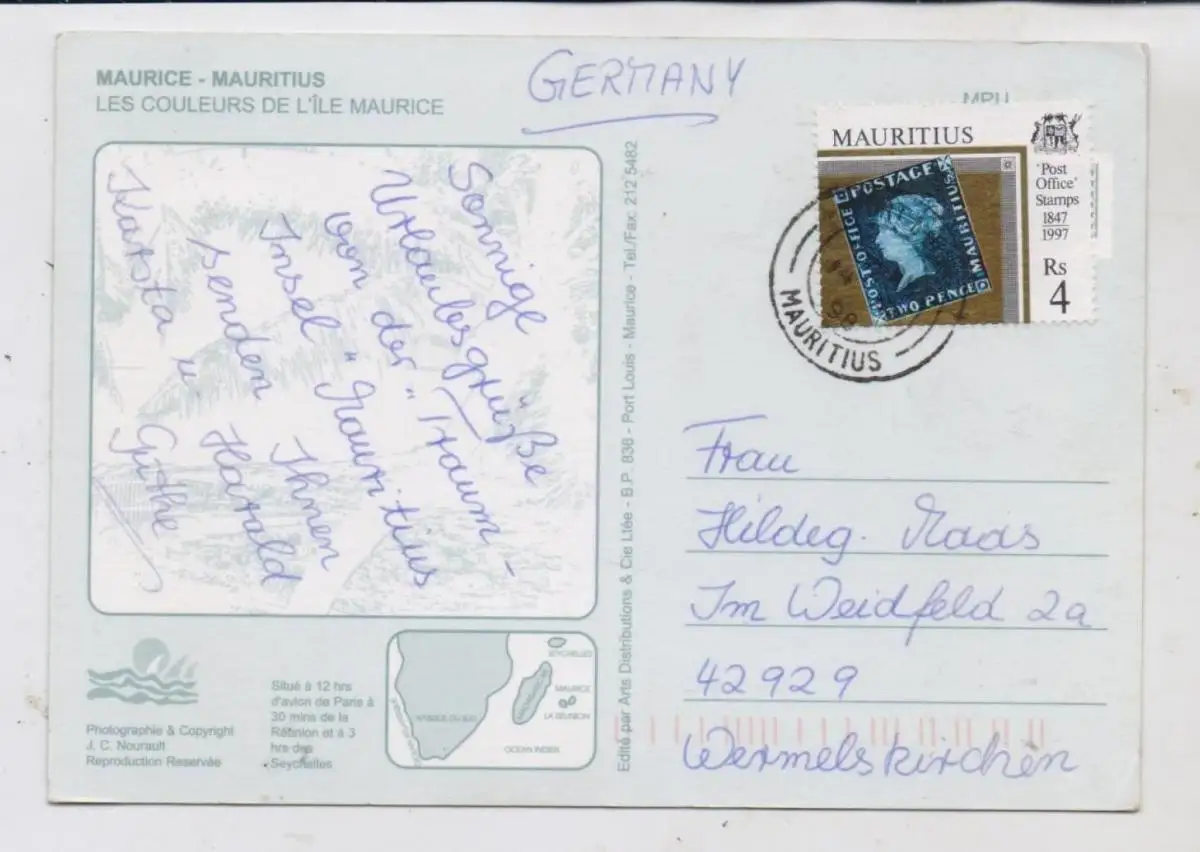 MAURICE - MAURITIUS
LES COULEURS DE L'ÎLE MAURICE
GERMANY
Sonnige
Urlaubsgrüße
von der "Traum-
Insel" Mauritius
senden Ihnen
Karsta u. Harald
Güthe
Photographie & Copyright
J. C. Nourault
Reproduction Reservée
Situé à 12 hrs
d'avion de Paris à
30 mins de la
Réunion et à 3
hrs des
Seychelles
SEYCHELLES
MAURICE
LA RÉUNION
AFRIQUE DU SUD
OCEAN INDIEN
Edité par Arts Distributions & Cie Ltée - B.P. 836 - Port Louis - Maurice - Tel./Fax: 212 5482
MAURITIUS
'Post
Office'
Stamps
1847
1997
Rs
4
POSTAGE
MAURITIUS
TWO PENCE
POST OFFICE
98
MAURITIUS
Frau
Hildeg. Maas
Im Weidfeld 2a
42929
Wermelskirchen